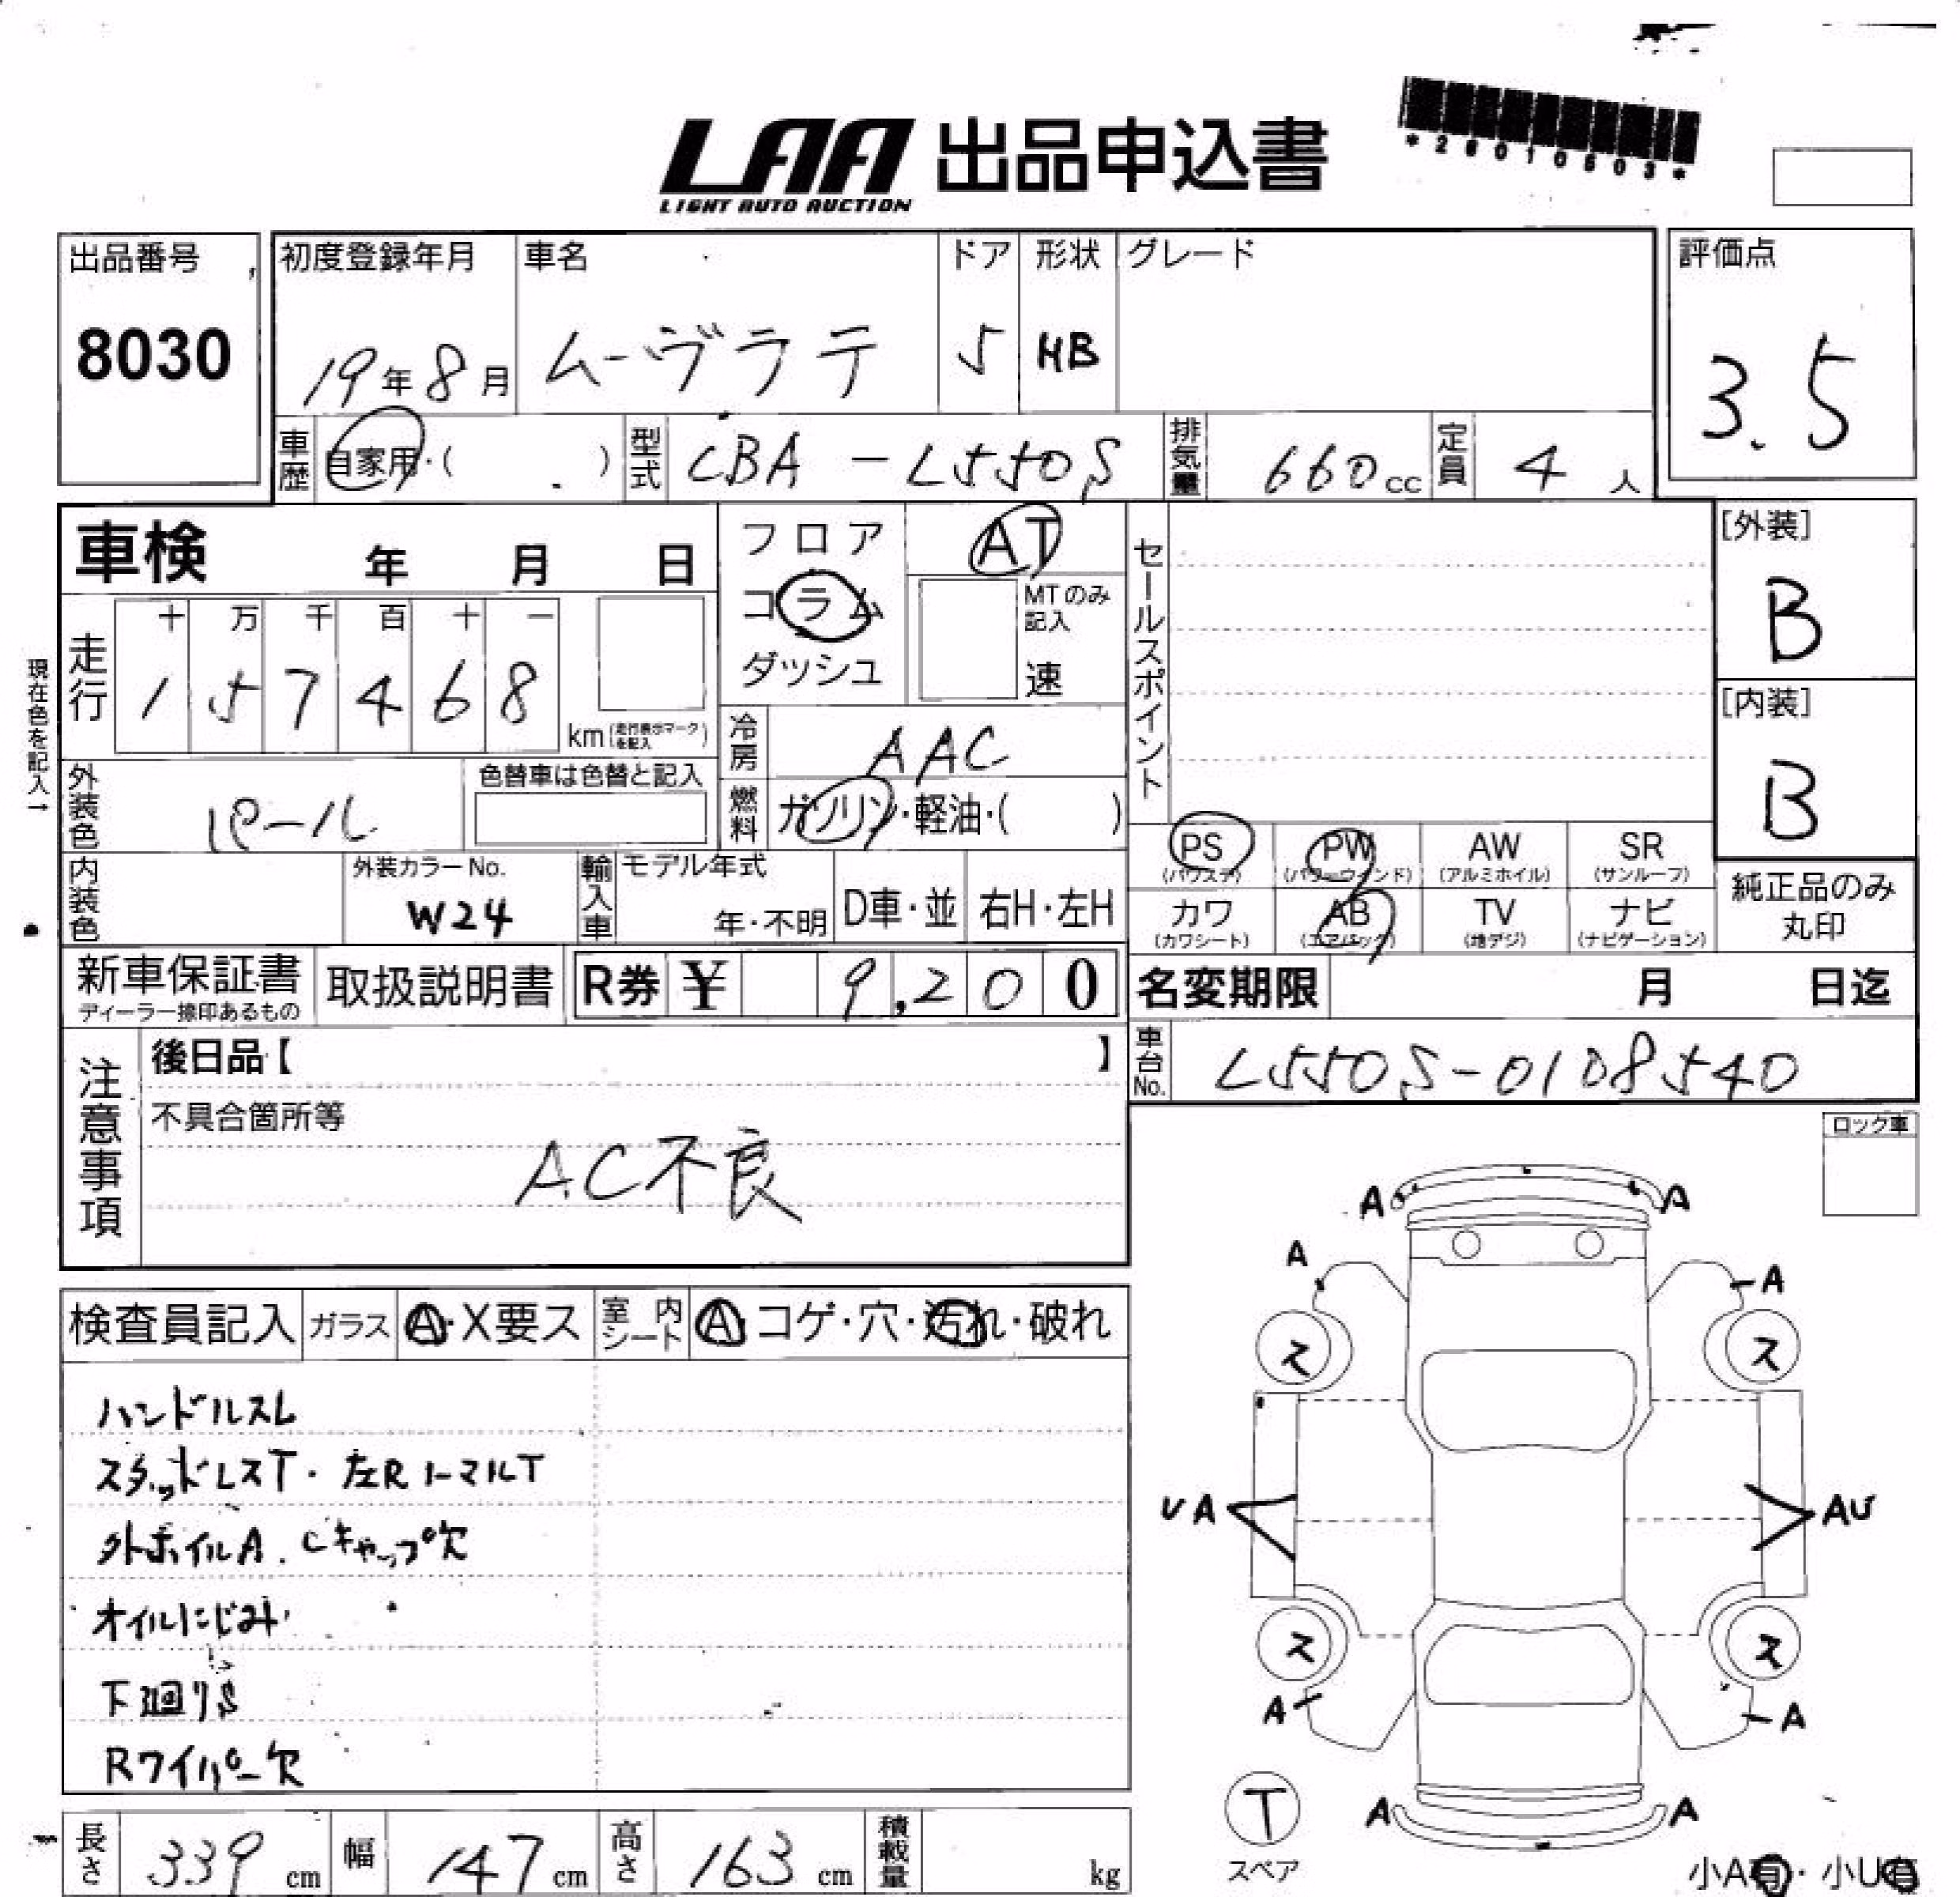 LAA 出品申込書
LIGHT AUTO AUCTION
*26010603*
出品番号
8030
初度登録年月
19年8月
車名
ムーヴラテ
ドア
5
形状
HB
グレード
評価点
3.5
車歴
自家用・( )
型式
CBA-L550S
排気量
660cc
定員
4人
車検 年 月 日
フロア
コラム
ダッシュ
AT
MTのみ
記入
速
セールスポイント
[外装]
B
[内装]
B
現在色を記入→
走行
十 万 千 百 十 一
1 5 7 4 6 8
km(走行表示マークを記入)
冷房
AAC
外装色
パール
色替車は色替と記入
燃料
ガソリン・軽油・( )
PS
(パワステ)
PW
(パワーウィンド)
AW
(アルミホイル)
SR
(サンルーフ)
内装色
外装カラーNo.
W24
輸入車
モデル年式
年・不明
D車・並
右H・左H
カワ
(カワシート)
AB
(エアバック)
TV
(地デジ)
ナビ
(ナビゲーション)
純正品のみ
丸印
新車保証書
ディーラー捺印あるもの
取扱説明書
R券 ¥ 9,200
名変期限 月 日迄
注意事項
後日品【 】
車台No.
L550S-0108540
不具合箇所等
AC不良
ロック車
検査員記入
ガラス
A・X要ス
室内シート
A・コゲ・穴・汚れ・破れ
ハンドルスレ
スタッドレスT・左RノーマルT
外ホイルA. Cキャップ欠
オイルにじみ
下廻りS
Rワイパー欠
A A
A A
ス ス
UA AU
ス ス
A A
A A
T
スペア
小A有・小U有
長さ
339cm
幅
147cm
高さ
163cm
積載量
kg